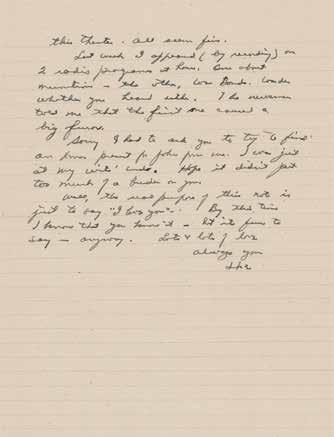 this theater. All seem fine.
Last week I appeared (by recording) on
2 radio programs at home. One about
munitions – the other, War Bonds. Wonder
whether you heard either. The newsmen
told me that the first one caused a
big furor.
Sorry I had to ask you to try to find
an Xmas present for John from me. I was just
at my wits' ends. Hope it didn't put
too much of a burden on you.
Well, the real purpose of this note is
just to say "I love you". By this time
I know that you know it – but it's fun to
say – anyway. Lots & lots of love
Always your
Ike